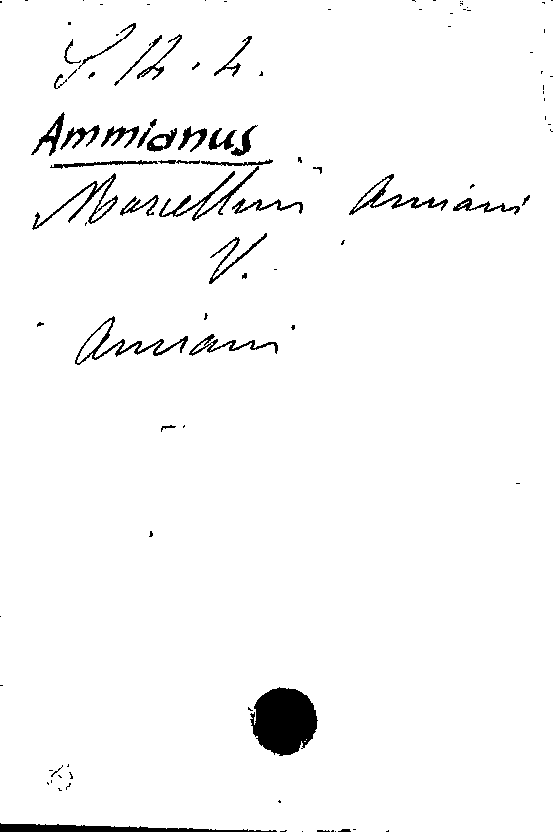 S. 12. 4.
Ammianus
Marcellini Amiani
V.
Amiani